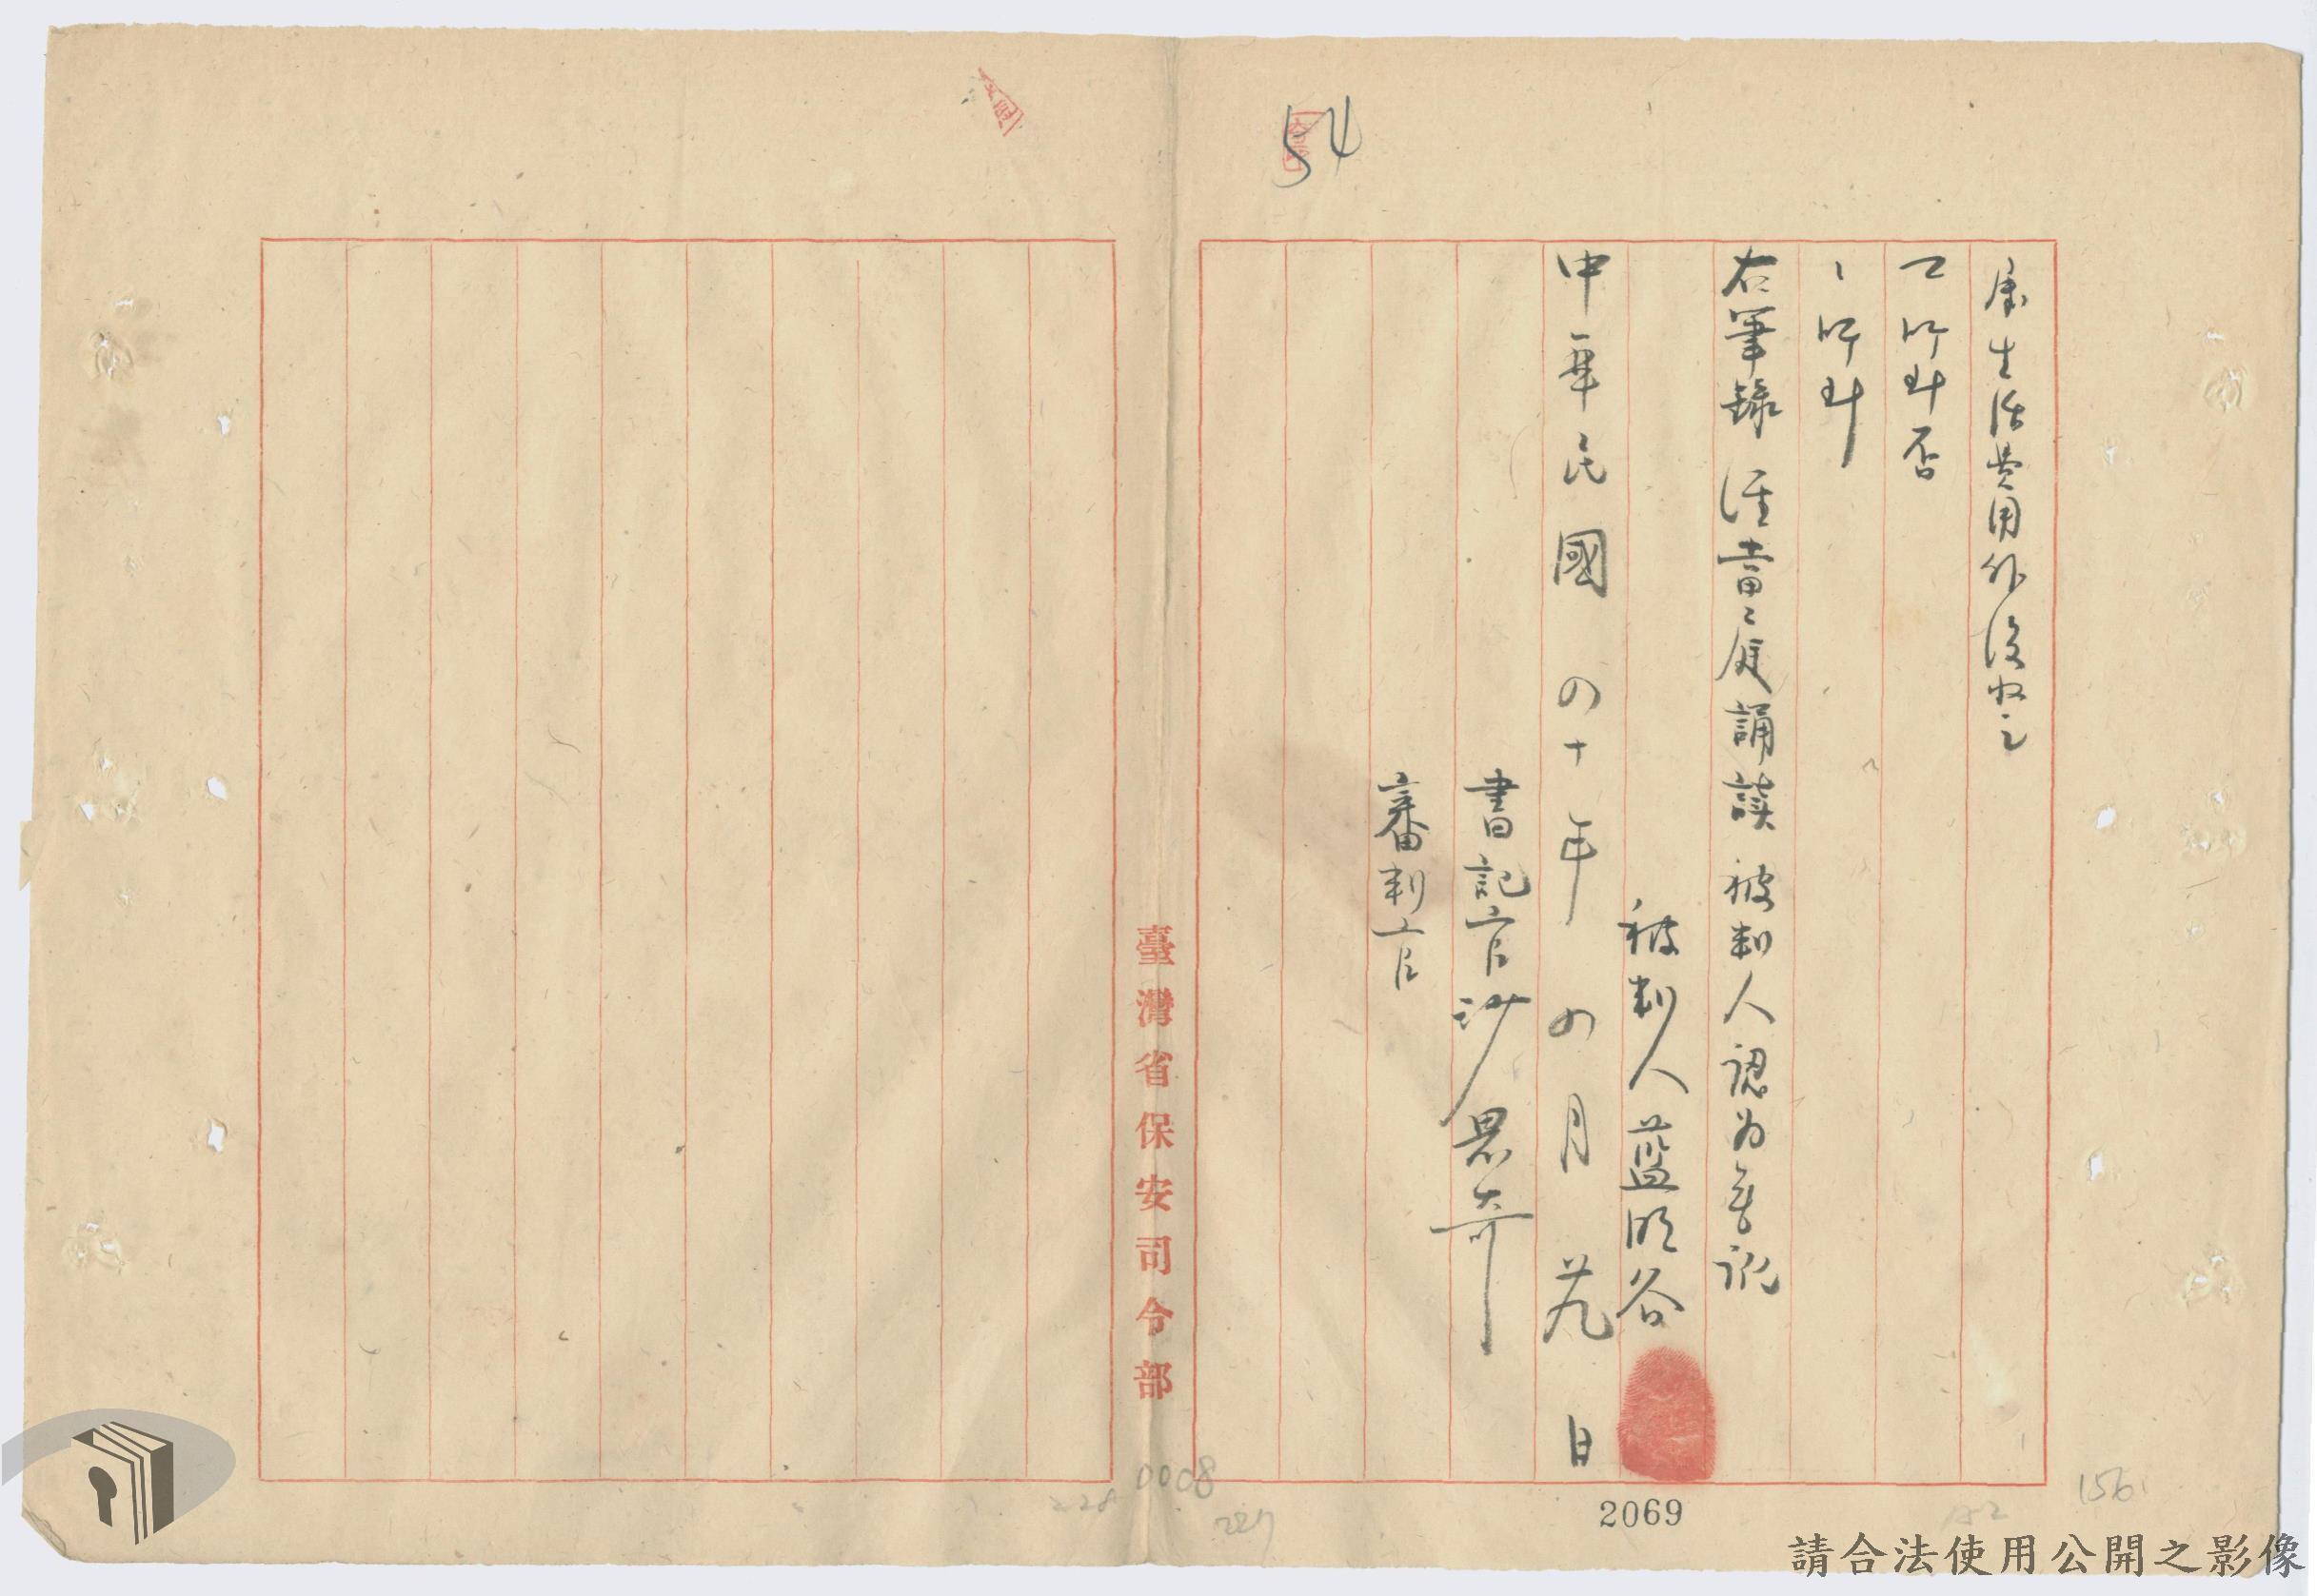 屬生活費用外沒收之
マ明白否
丶明白
右筆錄經當庭誦讀被判人認為無訛
被判人藍明谷
中華民國四十年四月廿九日
書記官沙思奇
審判官
臺灣省保安司令部
54
0008
228
227
2069
152
156
請合法使用公開之影像